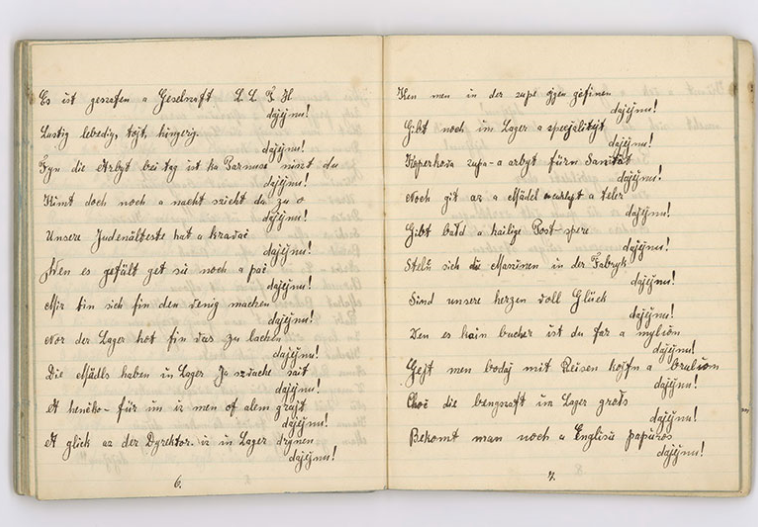 Es ist geszefen a Geselszaft L L F H
dajejnu!
Lustig lebedig, tojt, hingerig.
dajejnu!
Fyn die Arbyt bei tag ist ka Parnuse nimt du
dajejnu!
Kimt doch noch a nacht szicht du zu o
dajejnu!
Unsere Judenälteste hat a kravai
dajejnu!
Wen es gefält get sie noch a pai
dajejnu!
Mir fin sich fin den wenig machen
dajejnu!
Nor der Lager hot fin was zu lachen
dajejnu!
Die Mädls haben in Lager szwache sait
dajejnu!
A henöko- für im is men of alem grajt
dajejnu!
A glick az der Dyrektor is in Lager drynen
dajejnu!
6.
Ken men in der zupe gefinen
dajejnu!
Gibt noch im Lager a specjalityjt
dajejnu!
Koperkowa zupa - a arbyt fürn Sanität
dajejnu!
Noch git az a Mädel a teler
dajejnu!
Gibt bald a hailige Post-spere
dajejnu!
Stelt sich die Maszinen in der Fabryk
dajejnu!
Sind unsere herzen voll Glück
dajejnu!
Den es kain bucher ist du far a mylion
dajejnu!
Gejt men body mit Reisen kojfn a brulion
dajejnu!
Choć die bengszaft im Lager grojs
dajejnu!
Bekomt man noch a Englisu papüros
dajejnu!
7.